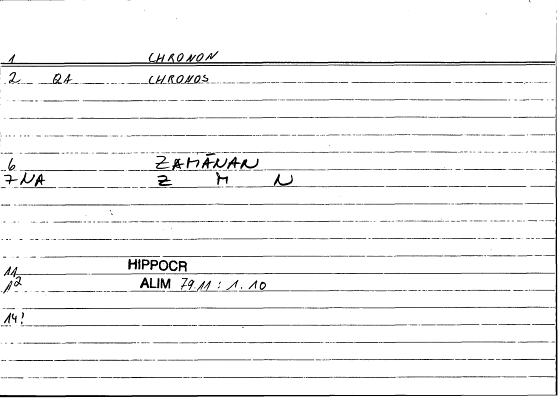 1 CHRONON
2 QA CHRONOS
6 ZAMĀNAN
7 NA Z M N
11 HIPPOCR
12 ALIM 79.11 : 1.10
14!